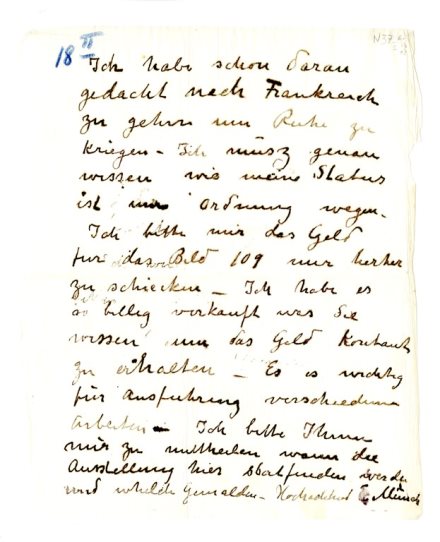 18 II
N37
Ich habe schon daran
gedacht nach Frankreich
zu gehen um Ruhe zu
kriegen – Ich müsz genau
wissen wie meine Status
ist ordnung wegen.
Ich bitte mir das Geld
fur das Bild 109 nur herher
zu schiecken – Ich habe es
so billig verkauft was Sie
wissen um das Geld Kontant
zu erhalten – Es is wichtig
für Ausfuhrung verschiedene
Arbeiten – Ich bitte Ihnen
mir zu mittheilen wann die
Ausstellung hier statfinden werde
und whelche Gemälden – Hochachtend E Münch